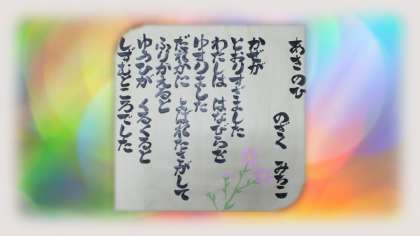 あきのひ
のぎく みちこ
かぜが
とおりすぎました
わたしは はなびらで
ゆすりました
だれかに よばれたきがして
ふりかえると
ゆうひが くるくると
しずむところでした